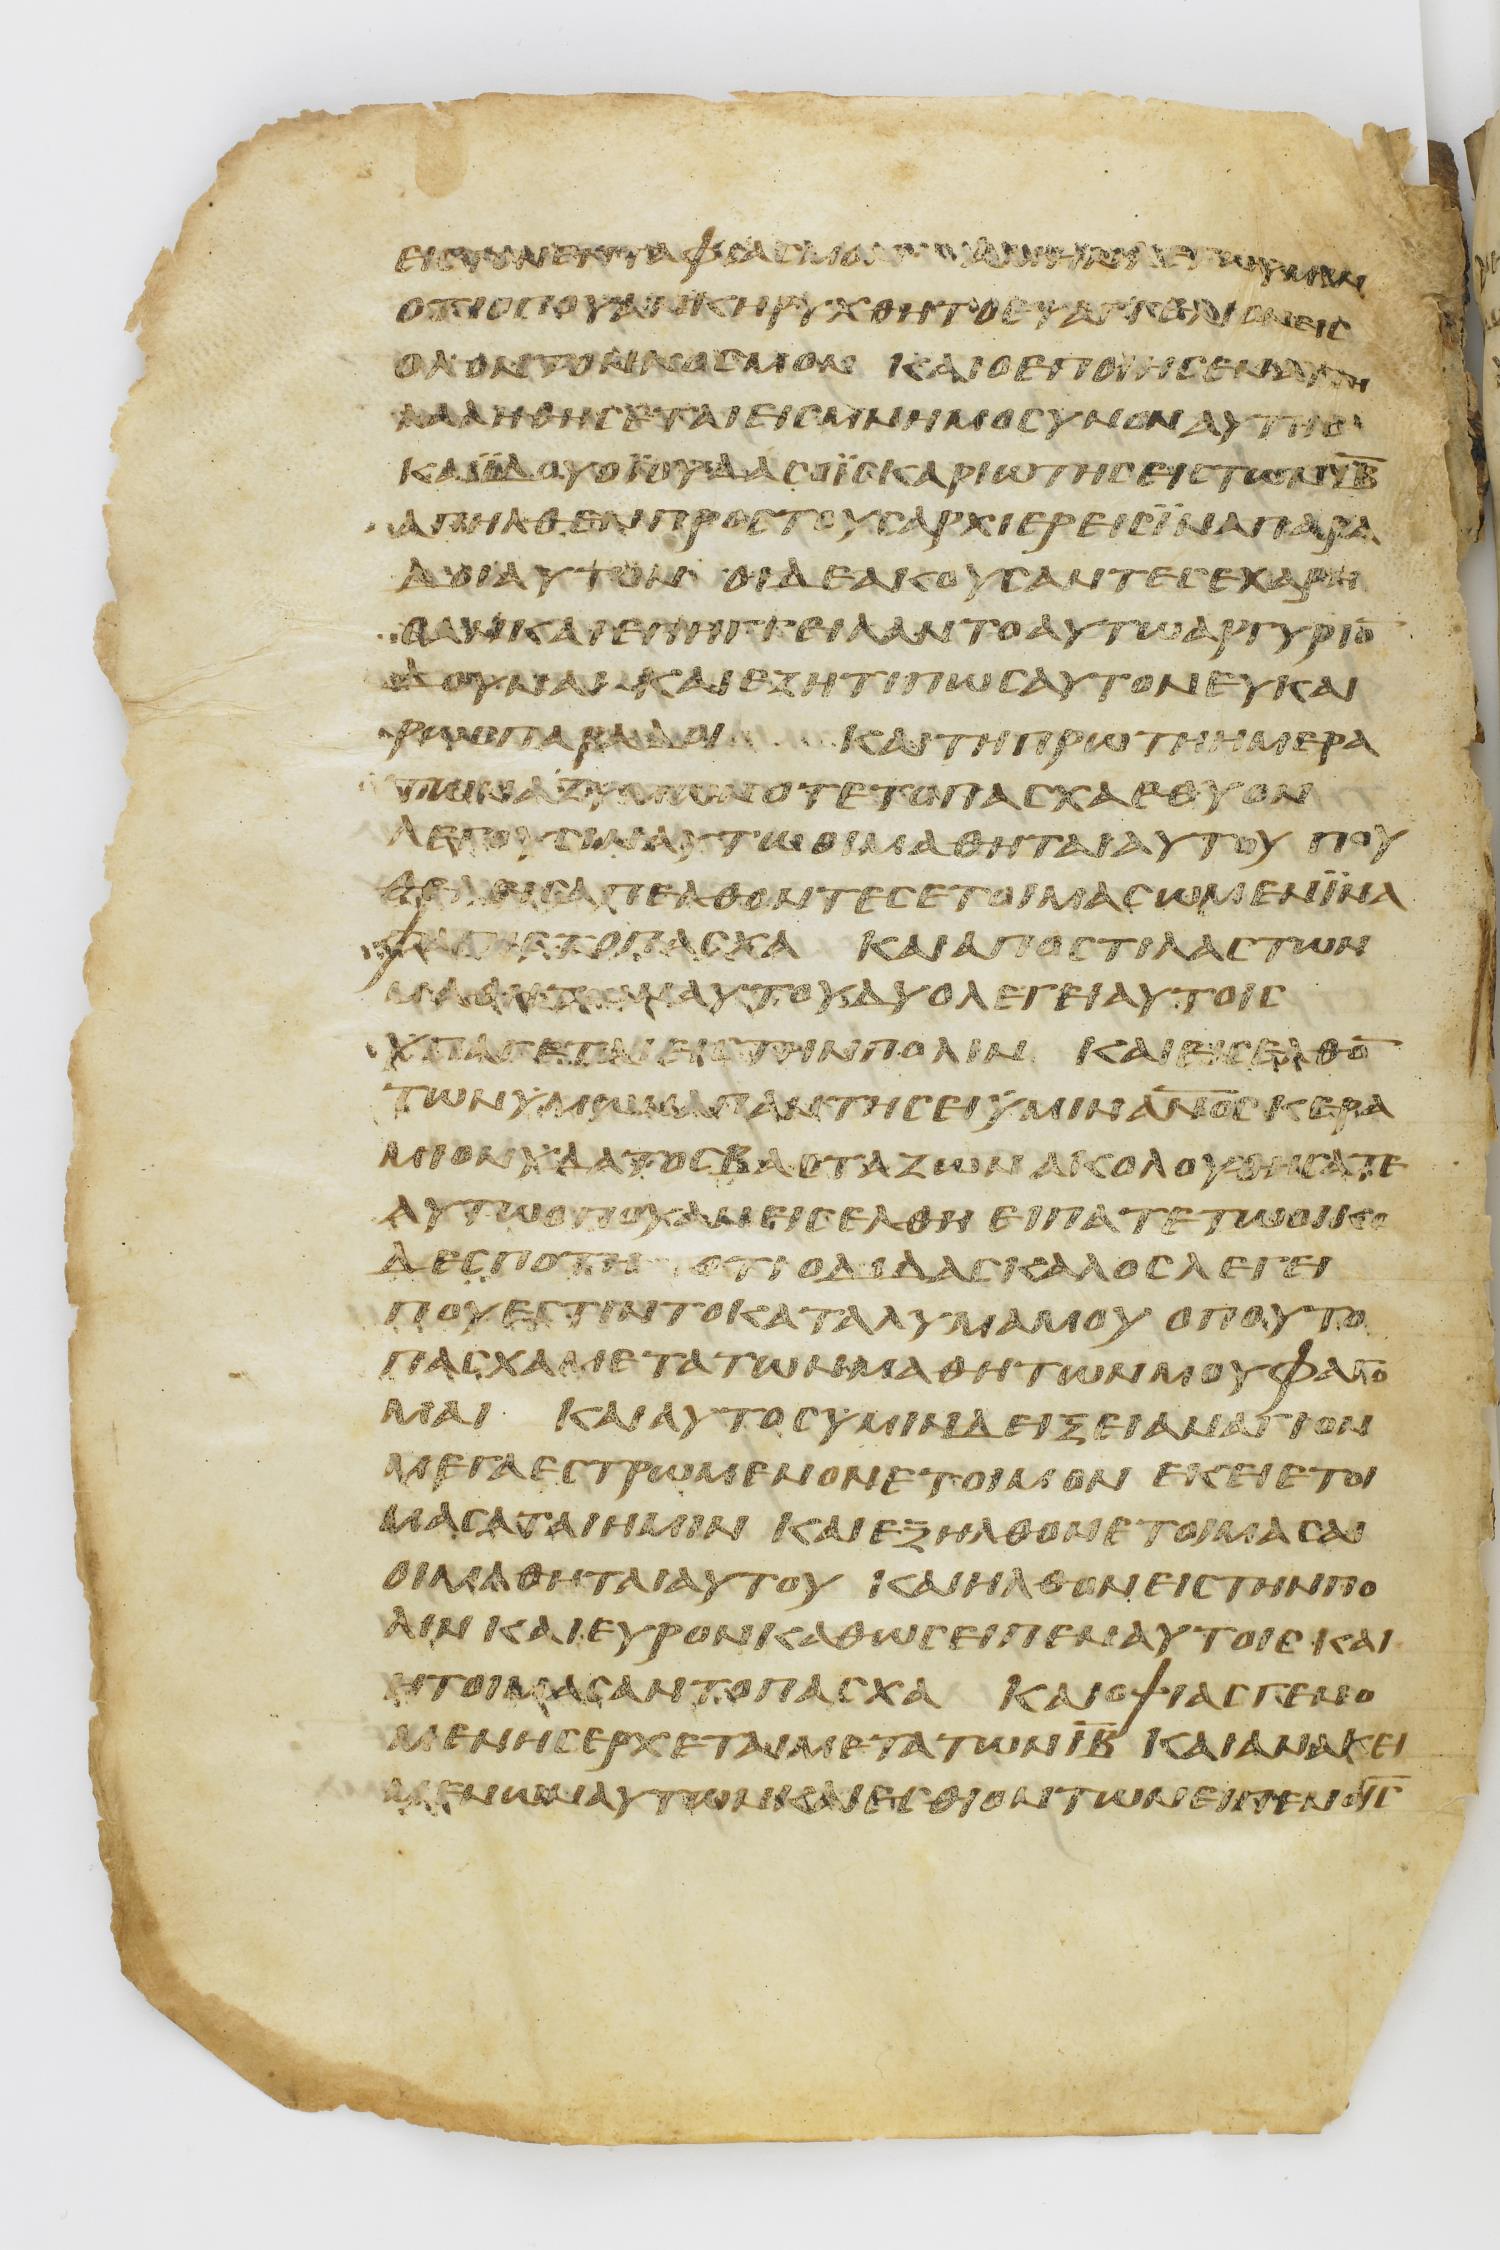 ΕΙCΤΟΝΕΝΤΑΦΙΑCΜΟΝ ΑΜΗΝΔΕΛΕΓΩΥΜΙΝ
ΟΤΙΟΠΟΥΑΝΚΗΡΥΧΘΗΤΟΕΥΑΓΓΕΛΙΟΝΕΙC
ΟΛΟΝΤΟΝΚΟCΜΟΝ ΚΑΙΟΕΠΟΙΗCΕΝΑΥΤΗ
ΛΑΛΗΘΗCΕΤΑΙΕΙCΜΝΗΜΟCΥΝΟΝΑΥΤΗC
ΚΑΙΪΔΟΥΪΟΥΔΑCΟΪCΚΑΡΙΩΤΗCΕΙCΤΩΝΙ̅Β̅
ΑΠΗΛΘΕΝΠΡΟCΤΟΥCΑΡΧΙΕΡΕΙCΪΝΑΠΑΡΑ
ΔΟΙΑΥΤΟΝ ΟΙΔΕΑΚΟΥCΑΝΤΕCΕΧΑΡΗ
CΑΝΚΑΙΕΠΗΓΓΕΙΛΑΝΤΟΑΥΤΩΑΡΓΥΡΙΟ̅
ΔΟΥΝΑΙ ΚΑΙΕΖΗΤΙΠΩCΑΥΤΟΝΕΥΚΑΙ
ΡΩCΠΑΡΑΔΟΙ ΚΑΙΤΗΠΡΩΤΗΗΜΕΡΑ
ΤΩΝΑΖΥΜΩΝΟΤΕΤΟΠΑCΧΑΕΘΥΟΝ
ΛΕΓΟΥCΙΝΑΥΤΩΟΙΜΑΘΗΤΑΙΑΥΤΟΥ ΠΟΥ
ΘΕΛΕΙCΑΠΕΛΘΟΝΤΕCΕΤΟΙΜΑCΩΜΕΝΪΝΑ
ΦΑΓΗCΤΟΠΑCΧΑ ΚΑΙΑΠΟCΤΙΛΑCΤΩΝ
ΜΑΘΗΤΩΝΑΥΤΟΥΔΥΟΛΕΓΕΙΑΥΤΟΙC
ΥΠΑΓΕΤΕΕΙCΤΗΝΠΟΛΙΝ ΚΑΙΕΙCΕΛΘΟ̅
ΤΩΝΫΜΩΝΑΠΑΝΤΗCΕΙΫΜΙΝΑΝ̅Ο̅C̅ΚΕΡΑ
ΜΙΟΝΫΔΑΤΟCΒΑCΤΑΖΩΝΑΚΟΛΟΥΘΗCΑΤΕ
ΑΥΤΩΟΠΟΥΑΝΕΙCΕΛΘΗ ΕΙΠΑΤΕΤΩΟΙΚΟ
ΔΕCΠΟΤΗ ΟΤΙΟΔΙΔΑCΚΑΛΟCΛΕΓΕΙ
ΠΟΥΕCΤΙΝΤΟΚΑΤΑΛΥΜΑΜΟΥΟΠΟΥΤΟ
ΠΑCΧΑΜΕΤΑΤΩΝΜΑΘΗΤΩΝΜΟΥΦΑΓΟ
ΜΑΙ ΚΑΙΑΥΤΟCΫΜΙΝΔΕΙΞΕΙΑΝΑΓΙΟΝ
ΜΕΓΑΕCΤΡΩΜΕΝΟΝΕΤΟΙΜΟΝ ΕΚΕΙΕΤΟΙ
ΜΑCΑΤΑΙΗΜΙΝ ΚΑΙΕΞΗΛΘΟΝΕΤΟΙΜΑCΑΙ
ΟΙΜΑΘΗΤΑΙΑΥΤΟΥ ΚΑΙΗΛΘΟΝΕΙCΤΗΝΠΟ
ΛΙΝΚΑΙΕΥΡΟΝΚΑΘΩCΕΙΠΕΝΑΥΤΟΙCΚΑΙ
ΗΤΟΙΜΑCΑΝΤΟΠΑCΧΑ ΚΑΙΟΨΙΑCΓΕΝΟ
ΜΕΝΗCΕΡΧΕΤΑΙΜΕΤΑΤΩΝΙ̅Β̅ ΚΑΙΑΝΑΚΕΙ
ΜΕΝΩΝΑΥΤΩΝΚΑΙΕCΘΙΟΝΤΩΝΕΙΠΕΝΟΙ̅C̅